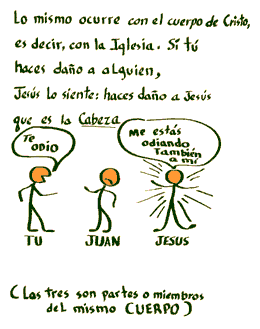 Lo mismo ocurre con el cuerpo de Cristo,
es decir, con la Iglesia. Sí tú
haces daño a alguien,
Jesús lo siente: haces daño a Jesús
que es la Cabeza
Te
odio
Me estás
odiando
También
a mí
TU
JUAN
JESUS
(Las tres son partes o miembros
del mismo CUERPO)